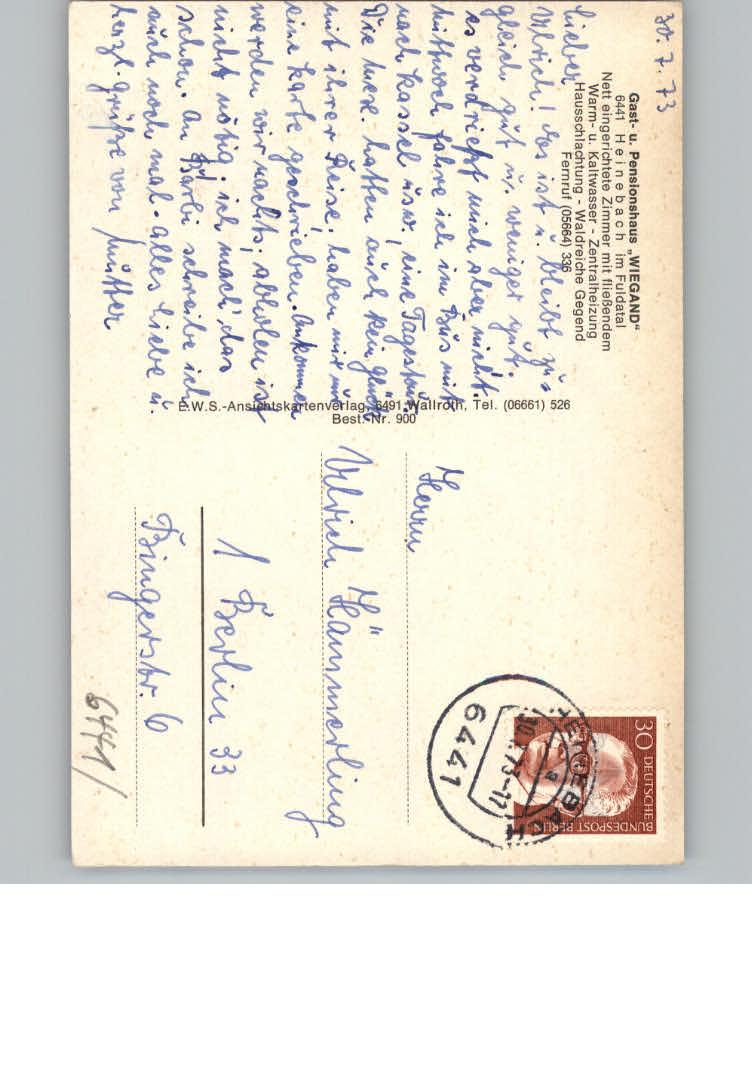 30. 7. 73
Gast- u. Pensionshaus „WIEGAND“
6441 Heinebach im Fuldatal
Nett eingerichtete Zimmer mit fließendem
Warm- u. Kaltwasser - Zentralheizung
Hausschlachtung - Waldreiche Gegend
Fernruf (05664) 336
Lieber
Ulrich! Das ist u. bleibt zu=
gleich gut u. weniger gut.
es verdrießt mich aber nicht.
Mittwoch fahre ich im Bus mit
nach Kassel usw. eine Tagestour.
Die haben auch kein Glück
mit ihrer Reise. haben mir nur
eine Karte geschrieben. Ankommen
werden wir nachts. abholen ist
nicht nötig. ich mach' das
schon. An Barbi schreibe ich
auch noch mal. Alles Liebe u.
herzl. Grüße von Mutter
E.W.S.-Ansichtskartenverlag, 6491 Wallroth, Tel. (06661) 526
Best.-Nr. 900
Herrn
Ulrich Hämmerling
1 Berlin 33
Bingerstr. 6
6441/
30 DEUTSCHE
BUNDESPOST BERLIN
HEINEBACH
30.7.73-17
a
6441